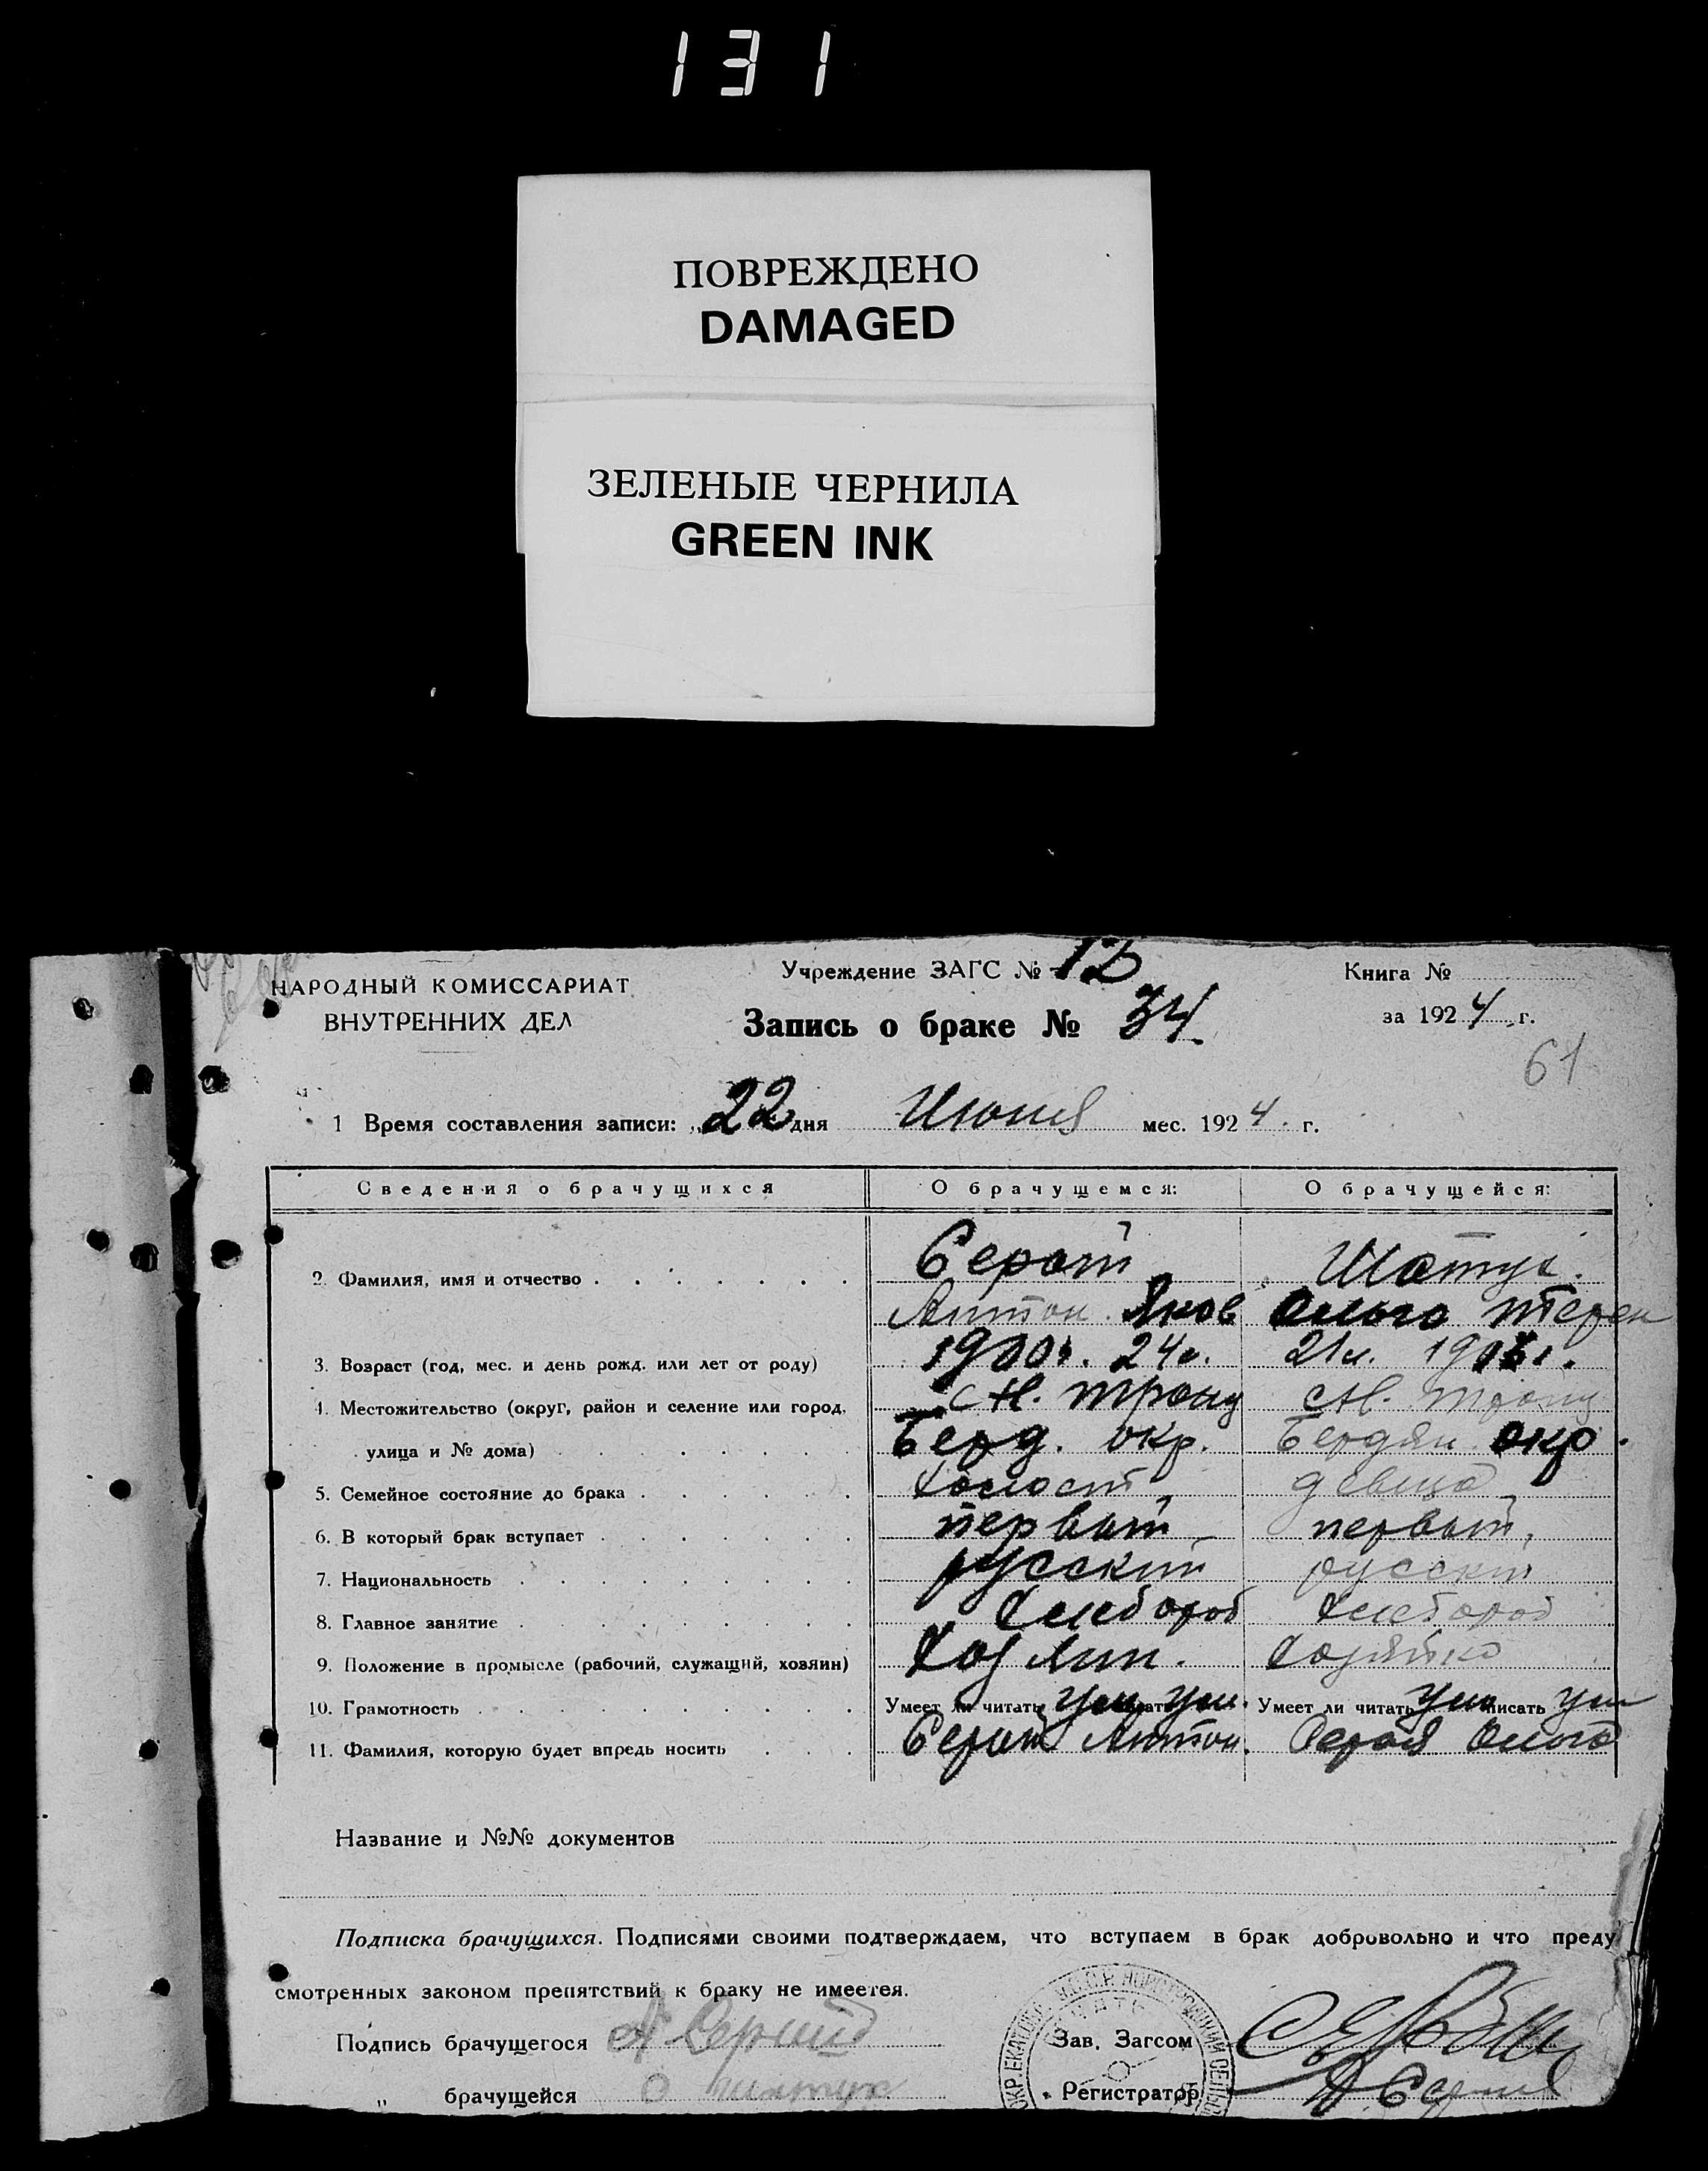 131
ПОВРЕЖДЕНО
DAMAGED
ЗЕЛЕНЫЕ ЧЕРНИЛА
GREEN INK
НАРОДНЫЙ КОМИССАРИАТ
ВНУТРЕННИХ ДЕЛ
Учреждение ЗАГС №
Запись о браке № 34.
Книга №
за 1924 г.
61
1 Время составления записи: „22 дня Июня мес. 1924. г.
Сведения о брачущихся О брачущемся: О брачущейся:
2. Фамилия, имя и отчество Серый Шатух.
Антон Яков Ольга Терен
3. Возраст (год, мес. и день рожд. или лет от роду) 1900г. 24л. 21л.
4. Местожительство (округ, район и селение или город, с Н. Троиц с Н. Троиц
улица и № дома) Берд. окр. Бердян. окр.
5. Семейное состояние до брака холост девица
6. В который брак вступает первый первый
7. Национальность русский русский
8. Главное занятие хлебороб хлебороб
9. Положение в промысле (рабочий, служащий, хозяин) хозяин. хозяйка
10. Грамотность Умеет ли читать ум. ум. Умеет ли читать ум писать ум
11. Фамилия, которую будет впредь носить Серый Антон. Серая Ольга
Название и №№ документов
Подписка брачущихся. Подписями своими подтверждаем, что вступаем в брак добровольно и что преду
смотренных законом препятствий к браку не имеется.
Подпись брачущегося А Серый
„ брачущейся О Шатух
Зав. Загсом
„ Регистратор